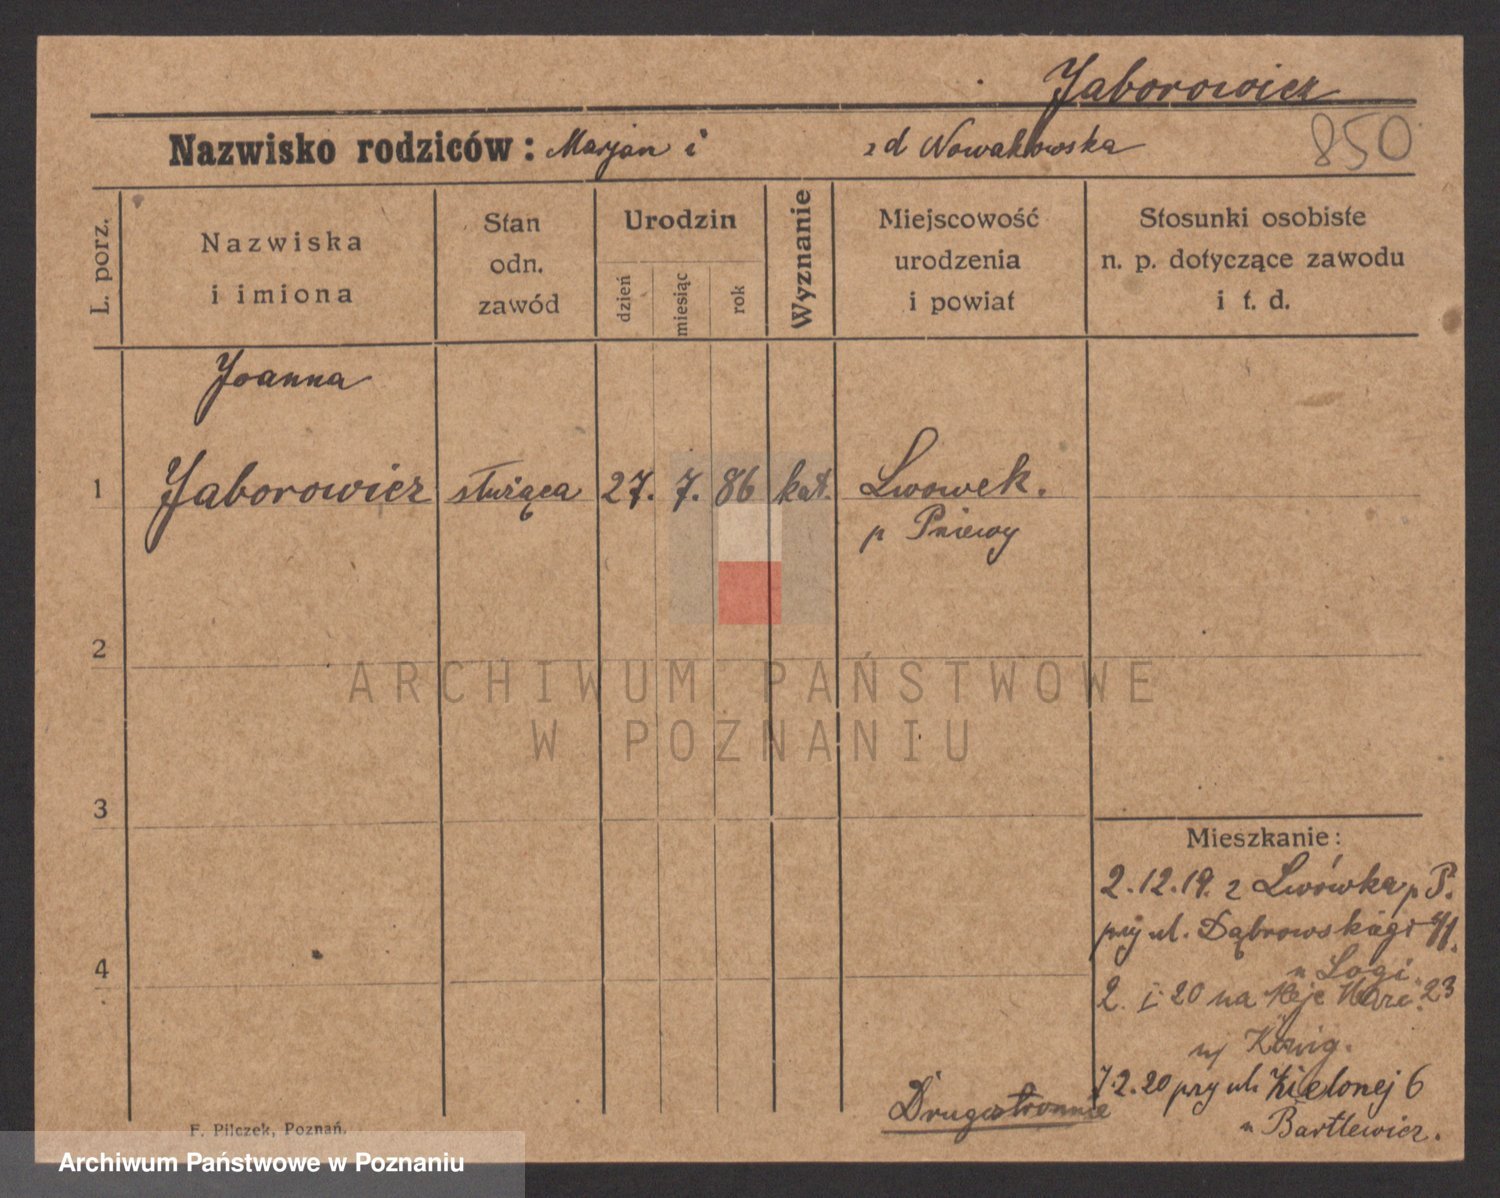 Jaborowicz
850
Nazwisko rodziców: Marjan i zd Nowakowska
L. porz.
Nazwiska i imiona
Stan odn. zawód
Urodzin
dzień
miesiąc
rok
Wyznanie
Miejscowość urodzenia i powiat
Stosunki osobiste n. p. dotyczące zawodu i t. d.
Joanna
1 Jaborowicz służąca 27. 7. 86 kat. Lwowek.
p Pniewy
2
ARCHIWUM PAŃSTWOWE
W POZNANIU
3
Mieszkanie:
2.12.19. z Lwówka p P.
przy ul. Dąbrowskiego
4
u Logi.
2. I. 20 na 23
7.2.20 przy ul. Zielonej 6
u Bartlewicz.
Drugostronnie
F. Pilczek, Poznań.
Archiwum Państwowe w Poznaniu